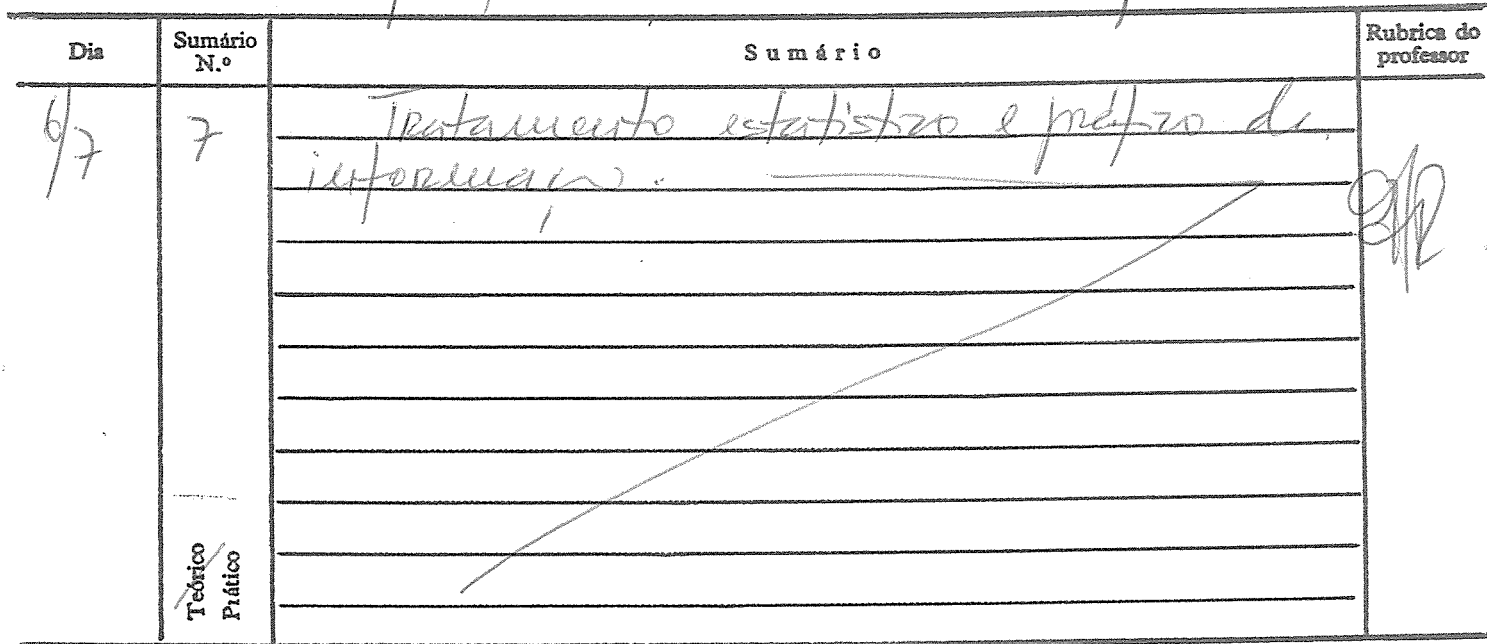 Dia
Sumário N.º
Sumário
Rubrica do professor
6/7
7
Tratamento estatístico e gráfico de
informação.
Teórico
Prático